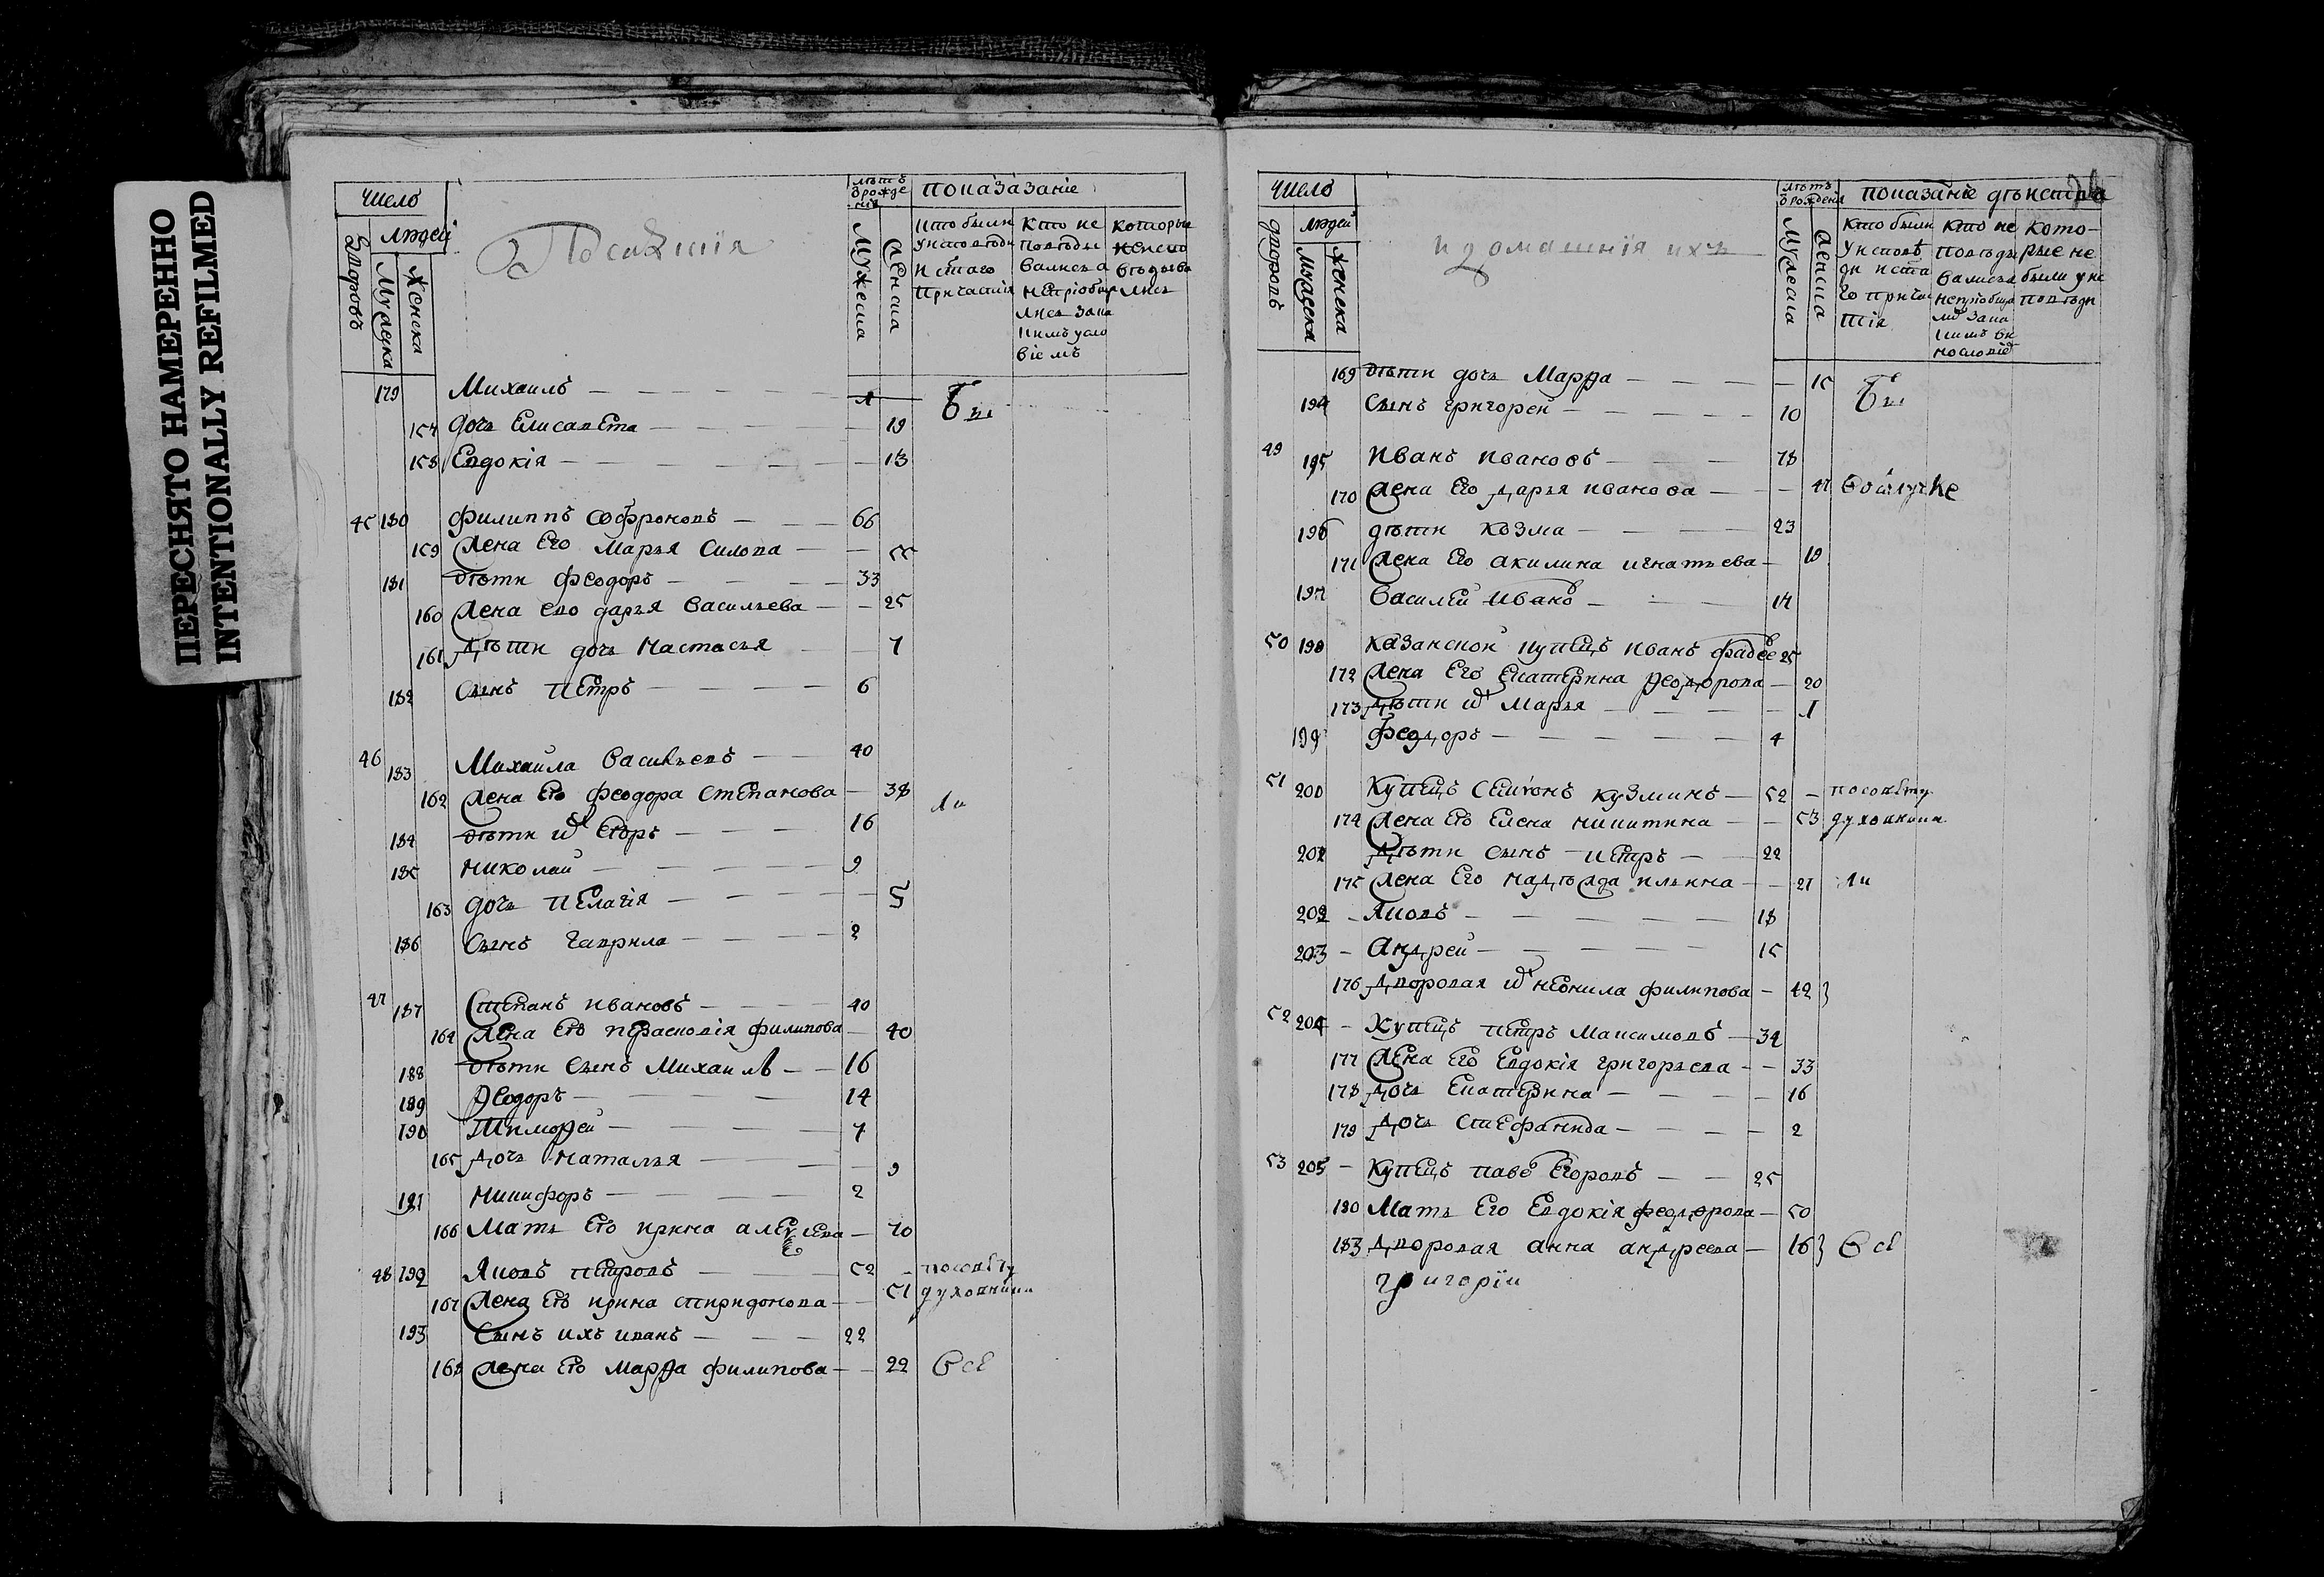 ПЕРЕСНЯТО НАМЕРЕННО
INTENTIONALLY REFILMED
число
дворовъ
людей
Мужеска
Женска
Посацкия
лѣтъ
ѿ рожде
нія
Мужеска
женска
показазаніе
кто были
у исповѣди
и стаго
причастія
Кто не
которые
179 Михаилъ 1 Бы
157 дочь Елисавета 19
158 Евдокія 13
45 180 филиппъ Софроновъ 66
159 Жена Его Марья Силова 55
181 дѣти феодоръ 33
160 Жена ево дарья Васильева 25
161 Дѣти дочь Настасья 7
182 Сынъ Петръ 6
46 183 Михаила Васильевъ 40
162 Жена Его феодора Степанова 38
184 дѣти Егоръ 16
185 николаи 9
163 дочь Пелагія 5
186 Сынъ Гаврила 2
47 187 Степанъ Ивановъ 40
164 Жена Его Парасковія филипова 40
188 дѣти Сынъ Михаилъ 16
189 Ѳеодоръ 14
190 Тимоѳеи 7
165 Дочь Наталья 9
191 Никифоръ 2
166 Мать Его ирина алексѣева 70
48 192 Яковъ Петровъ 52 по совѣту
167 Жена Его ирина спиридонова 51 духовника
193 Сынъ ихъ иванъ 22
168 Жена Его Марѳа филипова 22 Всѣ
число
дворовъ
людей
Мужеска
Женска
и домашнія ихъ
лѣтъ
ѿ рожденія
Мужеска
женска
показаніе дѣиства
кто были
у исповѣ
ди и ста
го прича
стія
кто не
кото-
рые не
были у ис
повѣди
169 дѣти дочь Марѳа 15 Бы
194 Сынъ григореи 10
49 195 Иванъ Ивановъ 78
170 Жена Его Дарья Иванова 47 Во ѿлучке
196 дѣти Козма 23
171 Жена Его акилина игнатьева 19
197 Василеи Ивановъ 17
50 198 казанскои купецъ Иванъ фадѣевъ 25
172 Жена Его Екатерина Ѳеодорова 20
173 Дѣти Марья 1
199 Феодоръ 4
51 200 Купецъ Семіонъ Кузминъ 52 по совѣту
174 Жена Его Елена никитина 53 духовника
201 Дѣти сынъ Петръ 22
175 Жена Его Надѣжда ильина 21
202 Яковъ 18
203 Андреи 15
176 Дворовая Неонила филипова 42
52 204 Купецъ Петръ Максимовъ 34
177 Жена Его Евдокія григорьева 33
178 Дочь Екатерина 16
179 Дочь Стефанида 2
53 205 Купецъ паве Егоровъ 25
180 Мать Его Евдокія феодорова 50
183 Дворовая анна андреева 16 Всѣ
григоріи